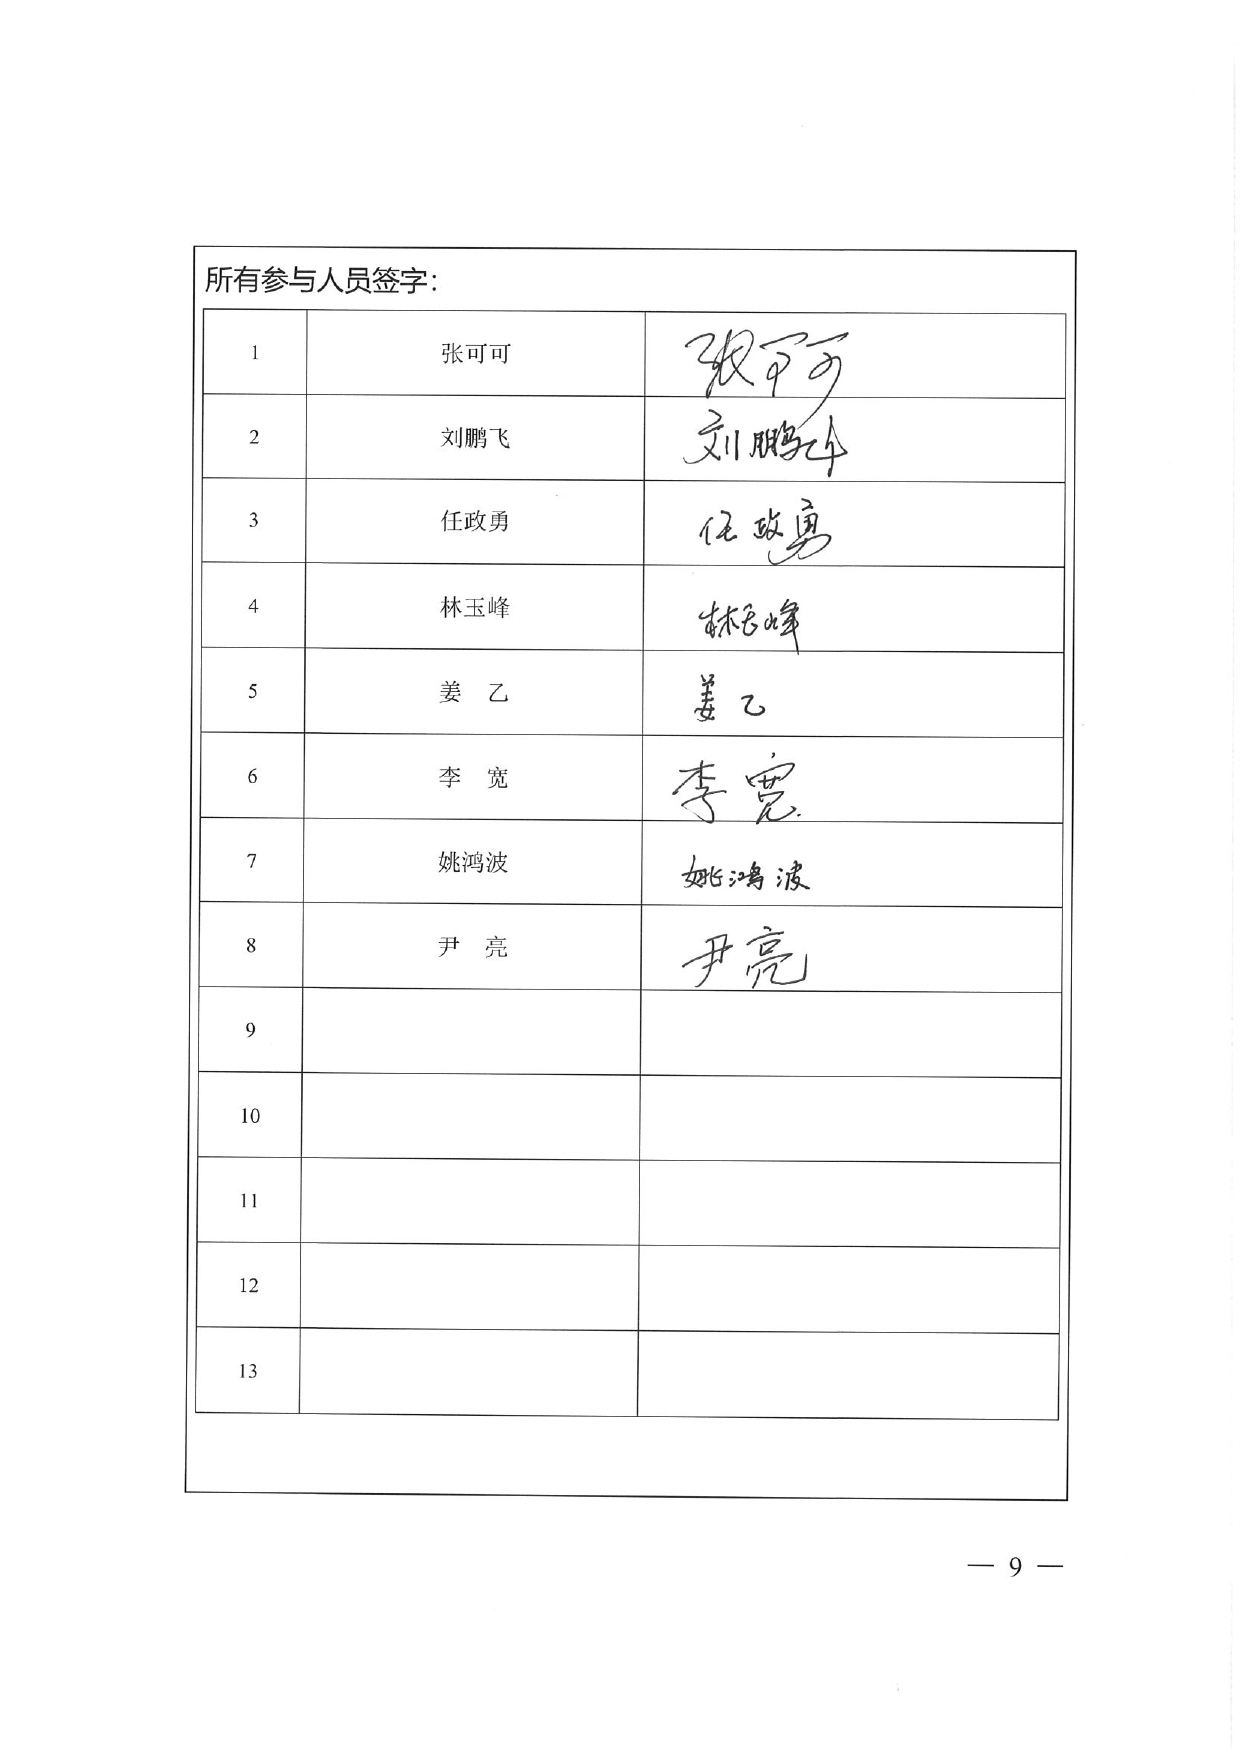 所有参与人员签字：
1 张可可 张可可
2 刘鹏飞 刘鹏飞
3 任政勇 任政勇
4 林玉峰 林玉峰
5 姜 乙 姜乙
6 李 宽 李宽
7 姚鸿波 姚鸿波
8 尹 亮 尹亮
9
10
11
12
13
— 9 —